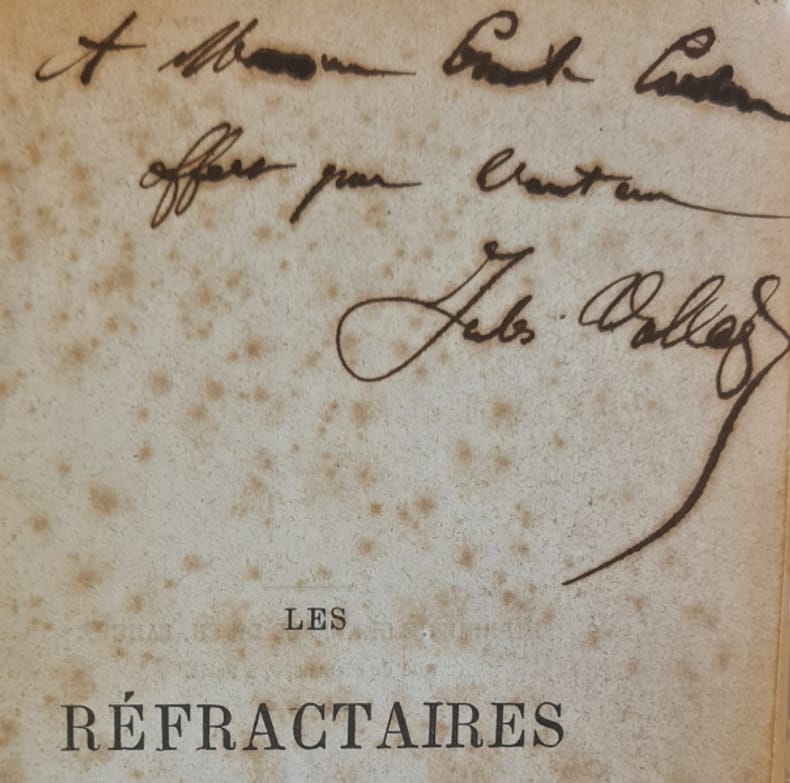 A Monsieur Emile
offert par l'auteur
Jules Vallès
LES
RÉFRACTAIRES